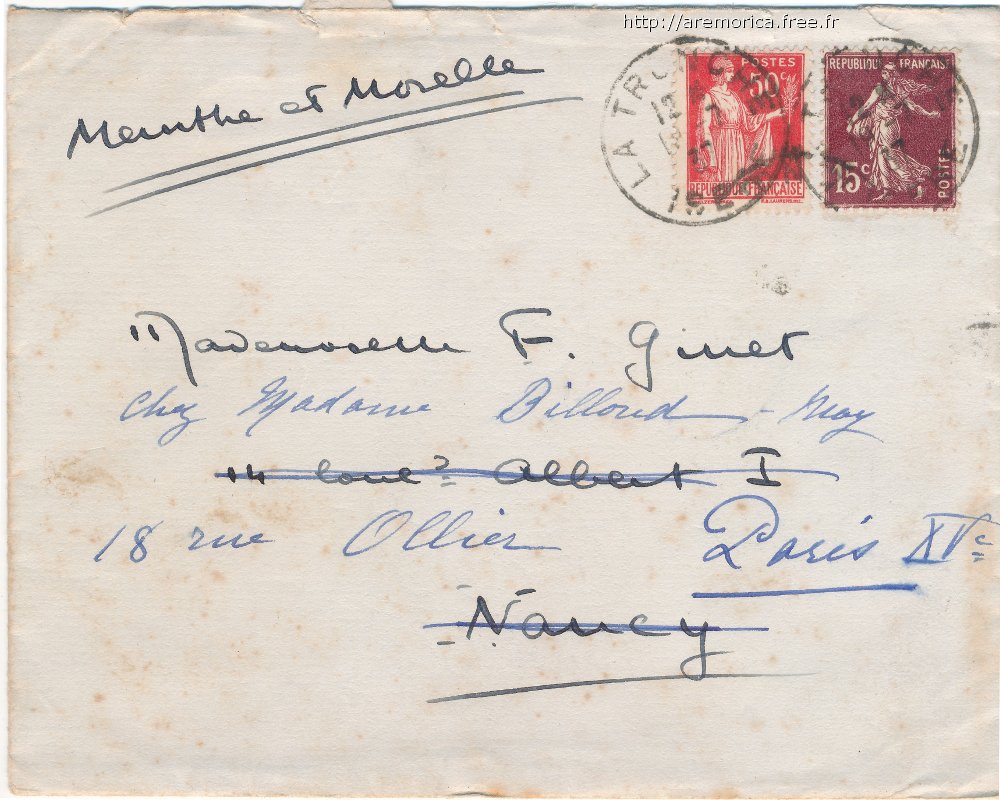 http://aremorica.free.fr
Menthe et Morelle
POSTES
50c
REPUBLIQUE FRANÇAISE
REPUBLIQUE FRANÇAISE
15c
POSTES
LA TRONCHE
ISERE
Mademoiselle F. Ginet
chez Madame Billoud-May
14 Boul^d Albert I
18 rue Ollier Paris XVe
Nancy